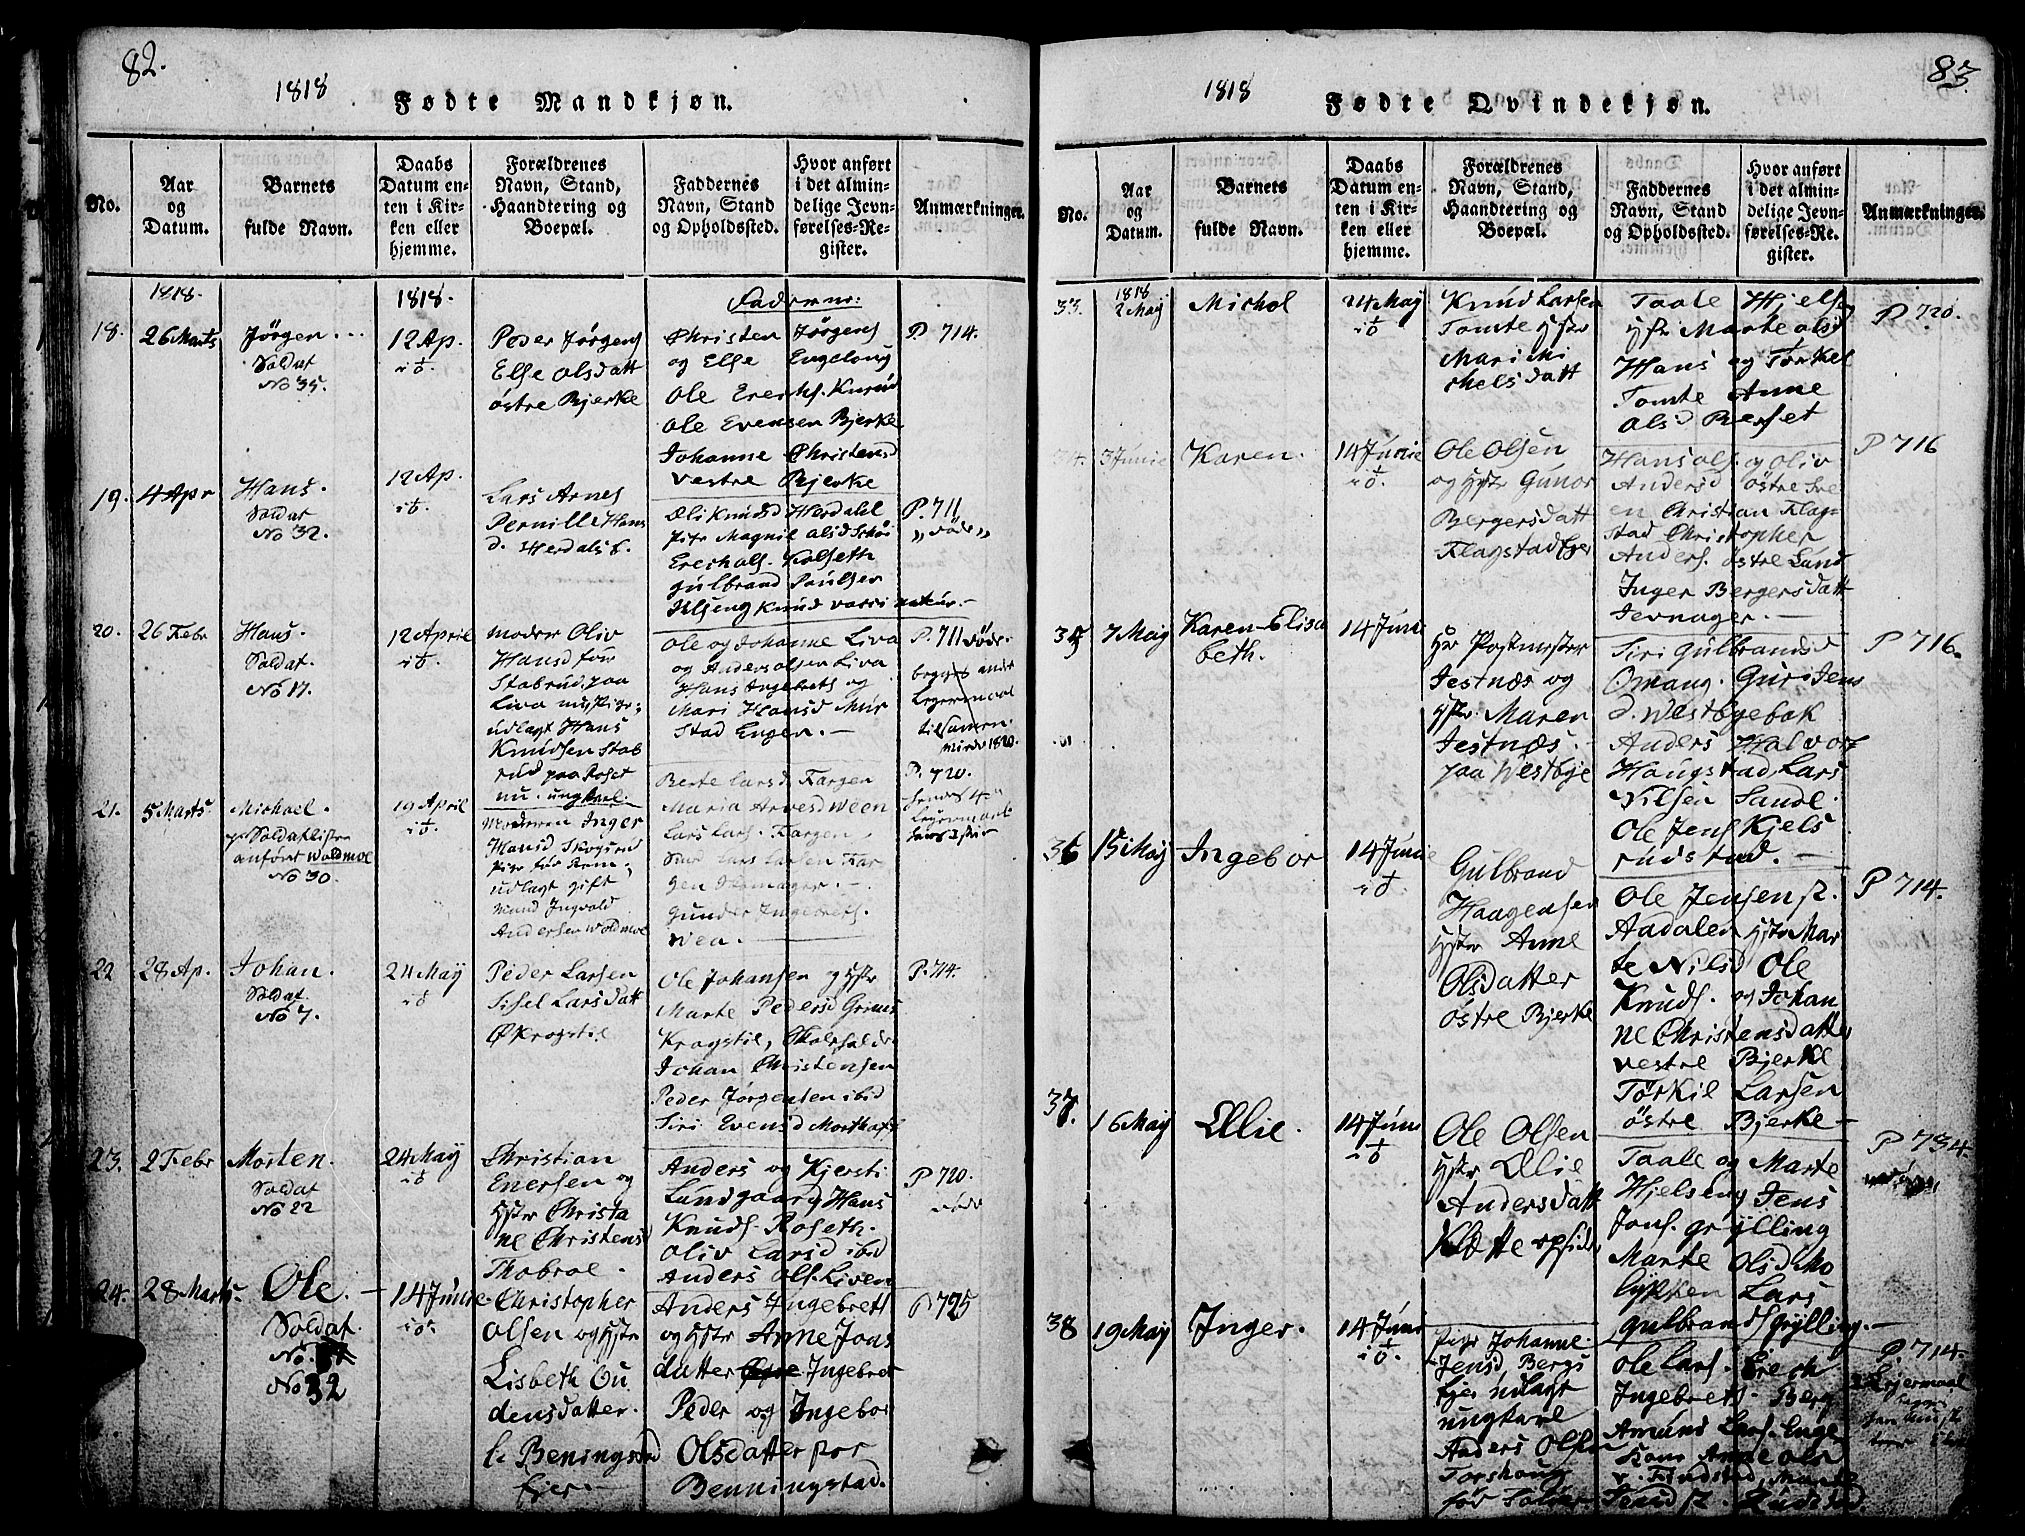 82.
1818
Fødte Mandkjøn.
No.
Aar og Datum.
Barnets fulde Navn.
Daabs Datum enten i Kirken eller hjemme.
Forældrenes Navn, Stand, Haandtering og Boepæl.
Faddernes Navn, Stand og Opholdssted.
Hvor anført i det almindelige Jevnførelses-Register.
Anmærkninger.
1818.
1818.
18.
26 Marts
Jørgen
Soldat
No 35.
12 Ap.
Peder Jørgens
Else Olsdatt
østre Bjerke
Christen Jørgens
og Else Engelong
Ole Erichs. Knud
Ole Evensen Bjerke
Johanne Christensd
vestre Bjerke
P. 714.
19.
4 Apr
Hans.
Soldat
No 32.
12 Ap.
Lars Arnes
Pernille Hans
d.
Eli Knudsd Herdahl
Gulbrand Poulsen
P. 711
"Døde"
20.
26 Febr
Hans.
Soldat.
No 17.
12 April
moder Oliv
Hansd før
Stabrud, paa
Liva nu, Pige;
udlagt Hans
Knudsen Stab
rud paa Roset
nu. ungkarl.
Ole og Johanne Liva
og Anders Olsen Liva
Hans Ingebreths og
Mari Hansd Mür
Stad Engen.
P. 711 Døde.
begges andet
Legermaal
tilsamen.
21.
5 Marts
Michael.
Soldatlisten
anført Woldmoe
No 30.
19 April
Moderen Inger
Hansd Skogsrud
udlagt gift
Mand Ingvald
Andersen Woldmoe
Berte Larsd. Fargen
Maria Arnesd Ween
Lars Lars. Fargen
Gunder Ingebreths.
Wen.
P. 720.
22
28 Ap.
Johan.
Soldat.
No 7.
24 Maÿ
Peder Larsen
Sisel Larsdatt
Ø Kragstie
Ole Johansen og Hstr
Marte Pedersd Grims
Kragstie,
Johan Christensen
Peder Jørgensen ibid
Siri Evensd
P. 714.
23.
2 Febr
Morten.
Soldat
No 22
24 Maÿ
Christian
Enersen og
Hstr Christa
ne Christensd
Thobroe.
Anders og Kjersti
Lundgaard, Hans
Knuds. Roseth.
Oliv Larsd ibid
Anders Ols. Liven
P 720.
Døde
24.
28 Marts.
Ole.
Soldat
No.
No 32
14 Junie
Christopher
Olsen og Hstr
Lisbeth Gu
densdatter.
L. Beningstad
Ejer.
Anders Ingebrett
og Hstr Anne Joas
datter Ingebret
Peder og Ingebor
Olsdatter paa
Benningstad.
P 725
83.
1818
Fødte Qvindekjøn.
No.
Aar og Datum.
Barnets fulde Navn.
Daabs Datum enten i Kirken eller hjemme.
Forældrenes Navn, Stand, Haandtering og Boepæl.
Faddernes Navn, Stand og Opholdssted.
Hvor anført i det almindelige Jevnførelses-Register.
Anmærkninger.
33.
1818
2 Maÿ
Michol
24 Maÿ
Knud Larsen
Tomte Hstr
Mari Mi
chelsdatt
Taale Hjelseng
Hstr Marte Olsd
Hans og Torkel
Tomte Anne
Olsd Berset
P 720.
34.
3 Junie
Karen.
14 Junie
Ole Olsen
og Hstr Gunor
Bergersdatt
Flagstad Ejer
Hans Ols. og Oliv
Andersd østre Sve
en Christian Flag-
stad Christopher
Anders. østre Lund
Inger Bergersdatt
Jevnager.
P 716
35
7 Maÿ
Karen-Elisa
beth.
14 Juni
Hr Postmester
Jestnæs og
Hstr. Maren
Jestnæs.
paa Westbÿe
Siri Gulbrandsd
Omang. Guri Jens
d. Westbÿebak
Anders Halvors
Haugstad, Lars
Nilsen Sandl.
Ole Jens Kjels
rudstad.
P 716.
36
15 Maÿ
Ingebor
14 Junie
Gulbrand
Haagensen
Hstr Anne
Olsdatter
østre Bjerke
Ole Jensen St.
Aadalen Hstr Mar
te Nilsd Ole
Knuds. og Johan
ne Christensdatter
vestre Bjerke
Törkil Larsen
östre Bjerke
P 714.
37.
16 Maÿ
Ellie.
14 Juni
Ole Olsen
Hstr Ellie
Andersdatt
Taale og Marte
Hjelseng Jens
Jons. grÿlling
Marte Olsd Mo
lÿkken Lars
gulbrands grÿlling.
P 734.
38
19 Maÿ
Inger.
14 Juni
pige Johanne
Jensd Bergs
Ejer udlagt
ungkarl
Anders Olsen
Torshoug
Ole Lars. Erich
Ingebrets. Berg
Amund Lars. Enge
P. 714.
Lejermaal